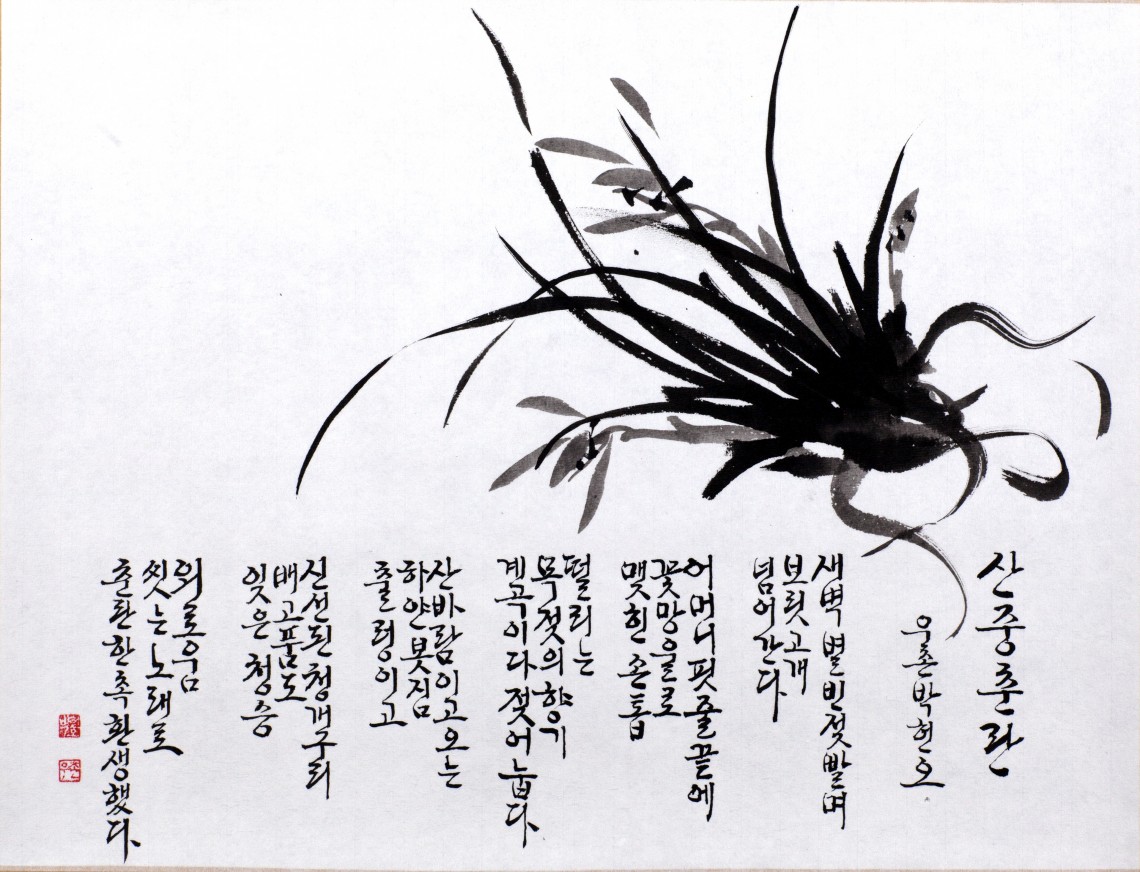 산중춘란
우촌 박헌오
새벽 별 빈 젖 빨며
보릿고개
넘어간다
어머니 핏줄 끝에
꽃망울로
맺힌 손톱
떨리는
목젖의 향기
계곡이 다 젖어 눕다.
산바람 이고 오는
하얀 봇짐
출렁이고
신선된 청개구리
배고픔도
잊은 청승
외로움
씻는 노래로
춘란 한 촉 환생했다.